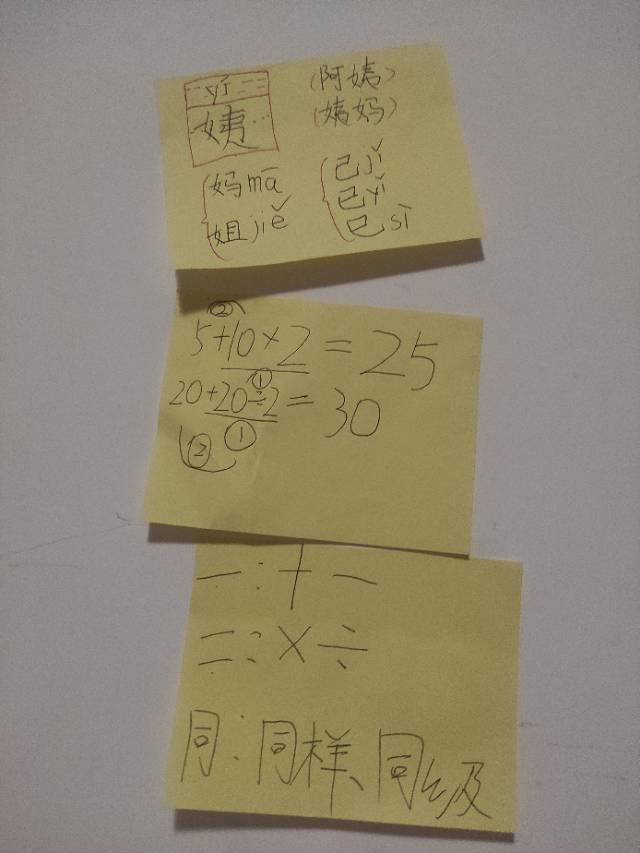 yí (阿姨)
姨 (姨妈)
妈 mā 己 jǐ
姐 jiě 已 yǐ
巳 sì
②
5+10×2=25
①
20+20÷2=30
② ①
一:+ −
二:× ÷
同:同样、同级